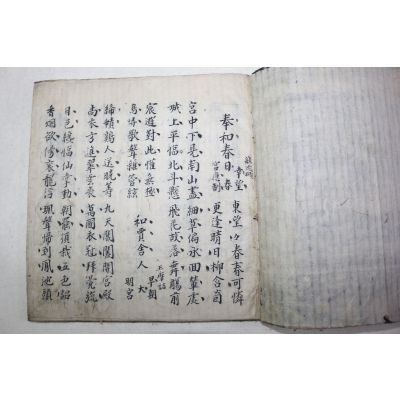 奉和春日幸望春宮應制
東望々春春可憐
更逢晴日柳含烟
宮中下見南山盡 細草偏承回輦處
城上平臨北斗懸 飛花故落舞觴前
宸遊對此歡無極 和賈舍人早朝
鳥哢歌聲雜管絃 大明宮 王摩詰
絳幘鷄人送曉籌 九天閶闔開宮殿
尚衣方進翠雲裘 萬國衣冠拜冕旒
日色纔臨仙掌動 朝罷須裁五色詔
香烟欲傍袞龍浮 珮聲歸到鳳池頭